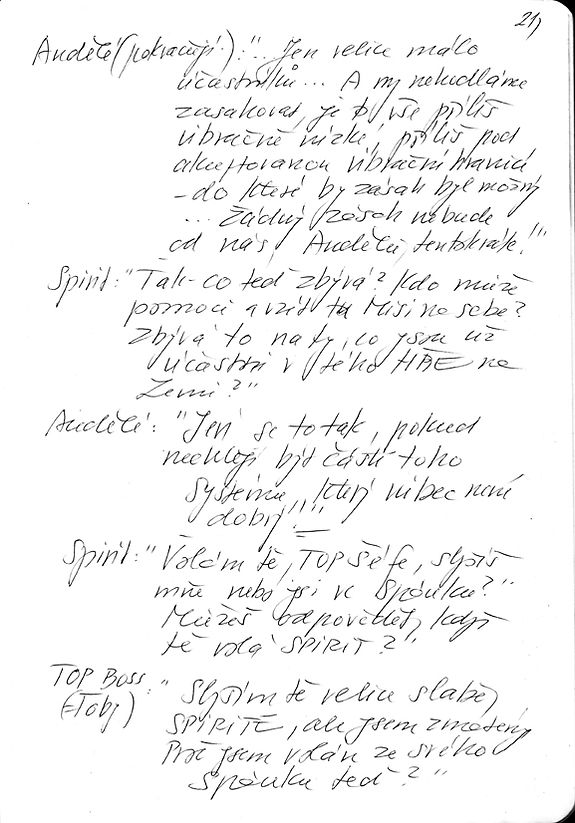 21)
Andělé (pokračují): "... Jen velice málo
účastníků ... A my nehodláme
zasahovat, je to vše příliš
vibračně nízké, příliš pod
akceptovanou vibrační hranicí
- do které by zásah byl možný
... Žádný zásah nebude
od nás, Andělů, tentokrát!"
Spirit: "Tak - co teď zbývá? Kdo může
pomoci a vzít tu Misi na sebe?
Zbývá to na ty, co jsou už
účastni v téhle HŘE na
Zemi?"
Andělé: "Jeví se to tak, pokud
nechtějí být částí toho
Systému, který vůbec není
dobrý!!"
Spirit: "Volám tě, TOP Šéfe, slyšíš
mne nebo jsi ve Spánku?"
Můžeš odpovědět, když
tě volá SPIRIT?"
TOP Boss: " Slyším tě velice slabě,
(=Toby) SPIRITE, ale jsem zmatený
Proč jsem volán ze svého
Spánku teď?"